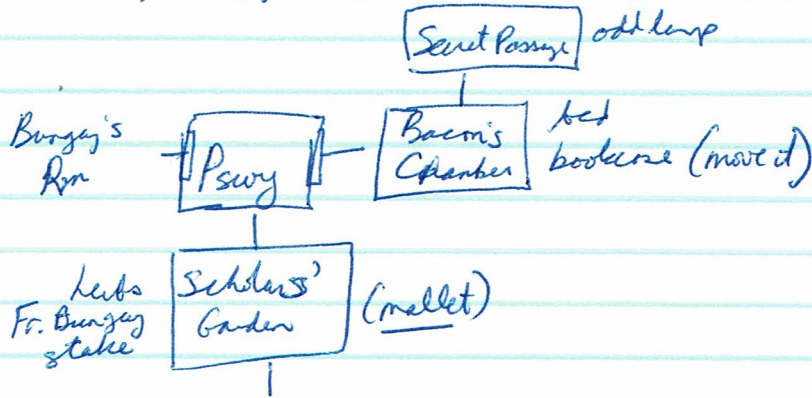 Secret Passage odd lamp
Bungay's
Rm
Pswy
Bacon's
Chamber
bed
bookcase (move it)
herbs
Fr. Bungay
stake
Scholars'
Garden
(mallet)